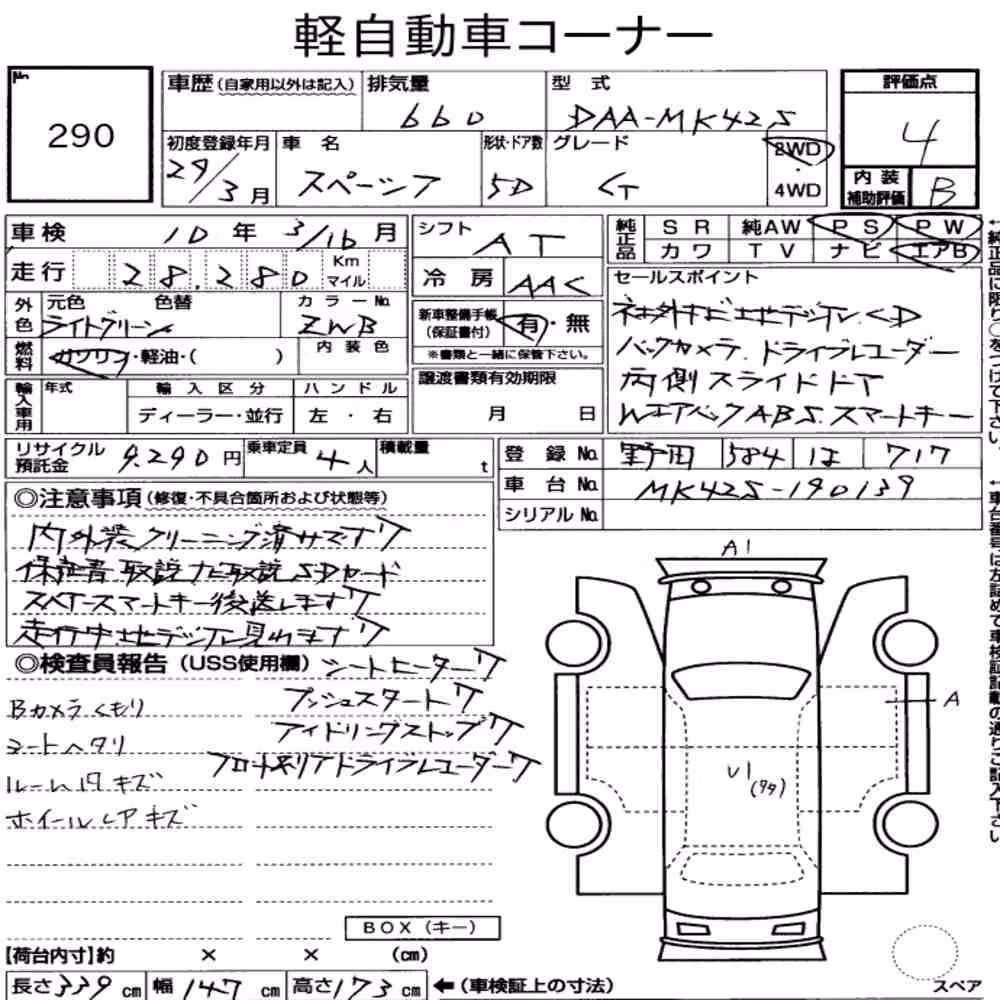 軽自動車コーナー
No. 290
車歴 (自家用以外は記入) 排気量 660 型式 DAA-MK42S 評価点 4
初度登録年月 29/3月 車名 スペーシア 形状・ドア数 5D グレード G 2WD・4WD 内装補助評価 B
車検 10年 3/16月 シフト AT
純正品 SR 純AW PS PW
カワ TV ナビ エアB
走行 28,280 Km マイル 冷房 AAC
外色 元色 ライトグリーン 色替 カラーNo. ZWB
新車整備手帳 (保証書付) 有・無
※書類と一緒に保管下さい。
燃料 ガソリン・軽油・( ) 内装色
セールスポイント
社外ナビ地デジTV CD
バックカメラ. ドライブレコーダー
両側スライドドア
WエアバックABS. スマートキー
輸入車用 年式 輸入区分 ディーラー・並行 ハンドル 左・右
譲渡書類有効期限 月 日
リサイクル預託金 9.290円 乗車定員 4人 積載量 t
登録No. 野田 584 は 717
車台No. MK42S-190139
シリアルNo.
◎注意事項 (修復・不具合箇所および状態等)
内外装クリーニング済サビ
保証書 取説 ナビ取説 SDカード
スペアースマートキー後送します
走行中地デジTV見れます
◎検査員報告 (USS使用欄)
シートヒーター
プッシュスタート
アイドリングストップ
フロント&リアドライブレコーダー
Bカメラくもり
シートヘタリ
ルーム内キズ
ホイールキズ
A1
A
U1
BOX (キー)
【荷台内寸】約 × × (cm)
長さ339cm 幅147cm 高さ173cm ←(車検証上の寸法)
スペア
←純正品に限り○をつけて下さい。
←車台番号は左詰めで車検証記載の通りご記入下さい。